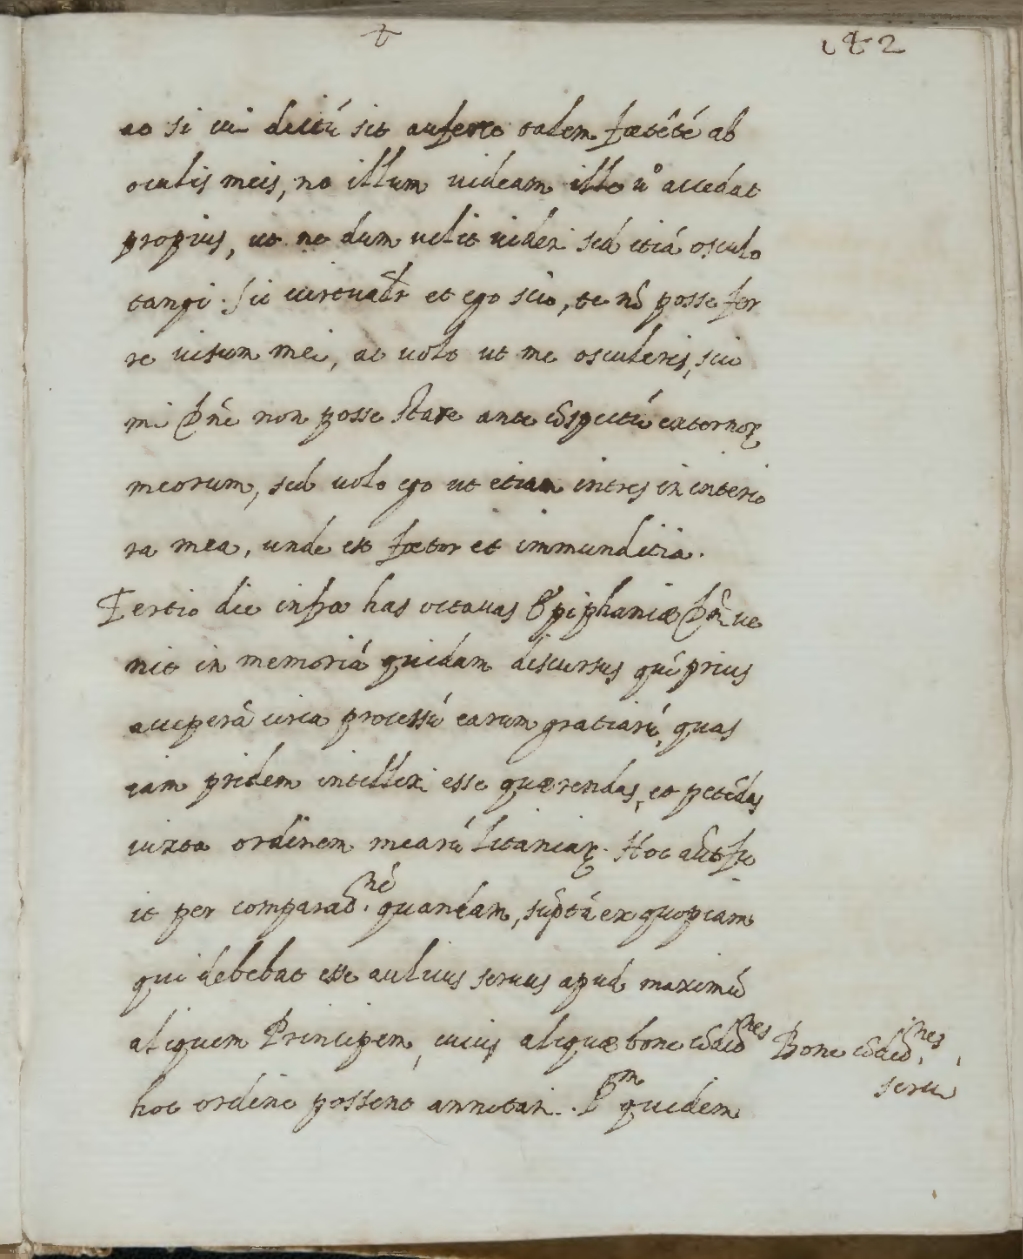 182
ac si cui dictũ sit auferte talem fœtẽtẽ ab
oculis meis, ne illum uideam ille u° accedat
propius, ut ne dum uelit uideri sed etiã osculo
tangi. Sic uirtualr̃ et ego scio, te nõ posse fer
re uisum mei, ac uolo ut me osculeris, scio
mi Dñe non posse stare ante cõspectũ externoꝝ
meorum, sed uolo ego ut etiam intres in interio
ra mea, unde est fœtor et immunditia.
Tertio die infra has octauas Epiphaniæ Dñi ue
nit in memoriã quidam discursus quẽ prius
acceperã circa processũ earum gratiarũ, quas
iam pridem intellexi esse quærendas, et petẽdas
iuxta ordinem mearũ litaniaꝝ. Hoc aũt fu
it per comparaõ.nẽ quandam, sũptã ex quopiam
qui debebat esse aulicus seruus apud maximũ
aliquem Principem, cuius aliquæ bone cõdiõnes
hoc ordine possent annotari. Pm quidem
Bone cõdiõ.nes
serui